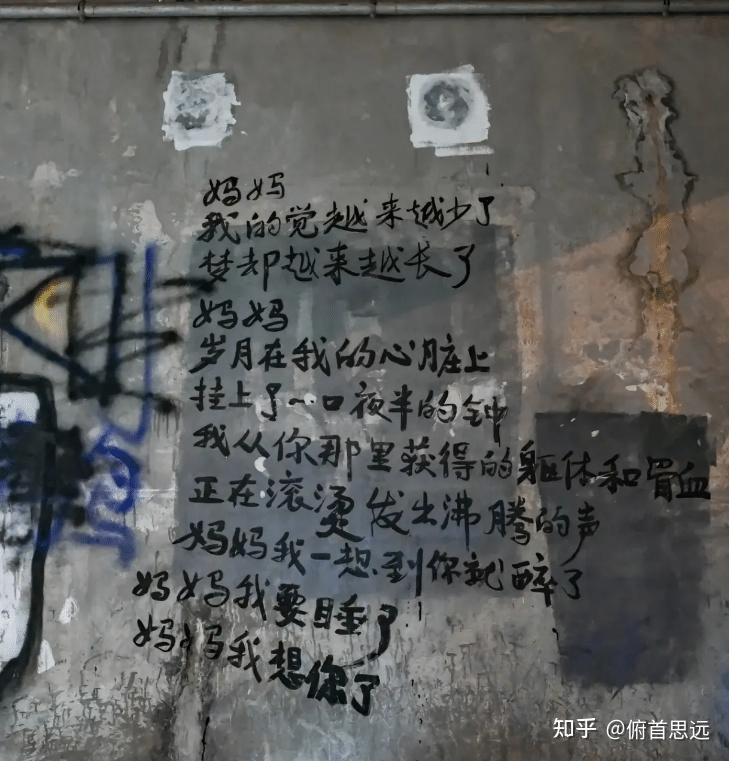 妈妈
我的觉越来越少了
梦却越来越长了
妈妈
岁月在我的心脏上
挂上了一口夜半的钟
我从你那里获得的躯体和胃血
正在滚烫发出沸腾的声
妈妈我一想到你就醉了
妈妈我要睡了
妈妈我想你了
知乎 @俯首思远